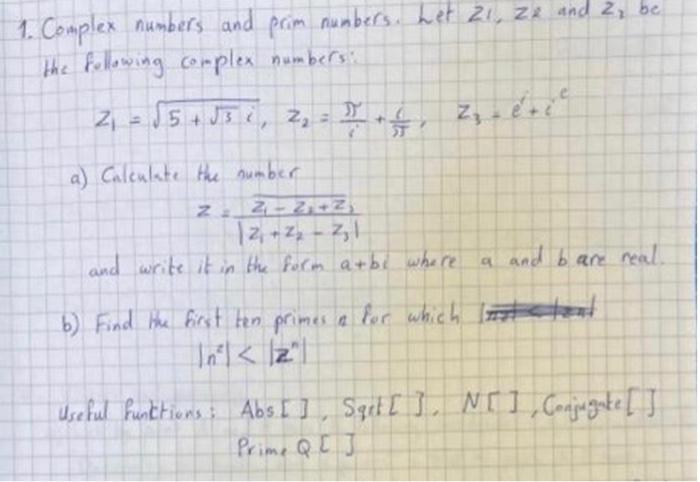 1. Complex numbers and prim numbers. Let z1, z2 and z3 be
the following complex numbers:
z₁ = √(5 + √3 i), z₂ = π/i + i/π, z₃ = eⁱ + iᵉ
a) Calculate the number
z = \overline{z₁ - z₂ + z₃} / |z₁ + z₂ - z₃|
and write it in the form a+bi where a and b are real.
b) Find the first ten primes n for which
|n²| < |zⁿ|
Useful functions: Abs[ ], Sqrt[ ], N[ ], Conjugate[ ]
Prime Q[ ]